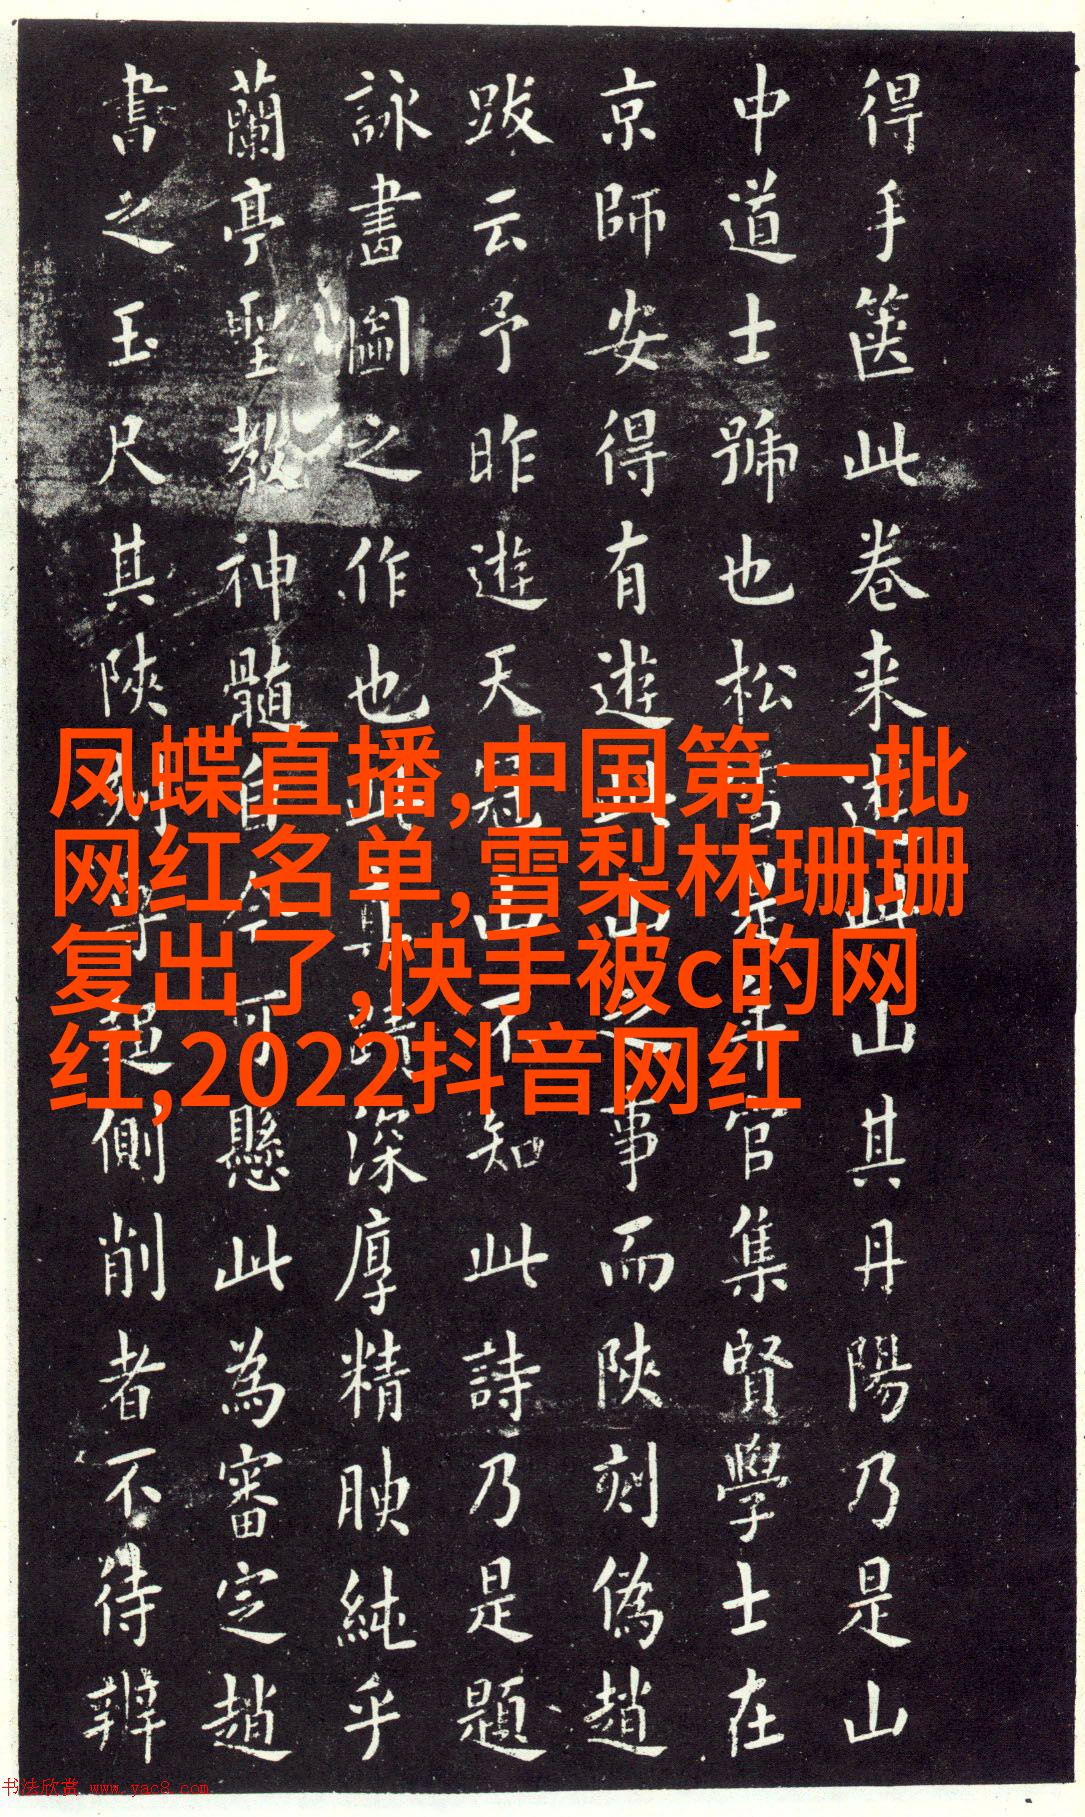 得手箧此卷来遊此山其丹陽乃是山
中道士號也松雪是年官集賢學士在
京師安得有遊山之事而陝刻偽趙
跋云予昨遊天冠山不知此詩乃是題
詠畫圖之作也此蹟深厚精腴純乎
蘭亭聖教神髓自今可懸此為審定趙
書之玉尺其陝刻字側削者不待辨
凤蝶直播,中国第一批
网红名单,雪梨林珊珊
复出了,快手被c的网
红,2022抖音网红
书法欣赏 www.yac8.com